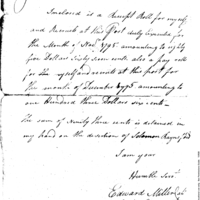 Inclosed is a Receipt Roll for myself
and Remark at this Post duly Signed for
the Month of Nov. 1795 amounting to eighty
five Dollars Sixty six cents also a pay roll
for the myself and remark at this post for
the month of December 1795 amounting to
one Hundred three Dollars six cents
The sum of Ninety three cents is retained in
my hand on the direction of Solomon
I am your
Humble Servt
Edward Miller